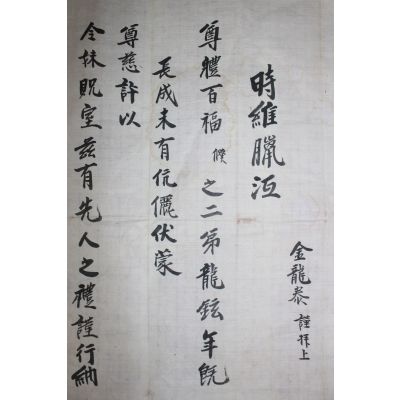 金龍泰 謹拜上
時維臘沍
尊體百福 僕 之二第龍鉉年旣
長成未有伉儷伏蒙
尊慈許以
令妹貺室玆有先人之禮謹行納